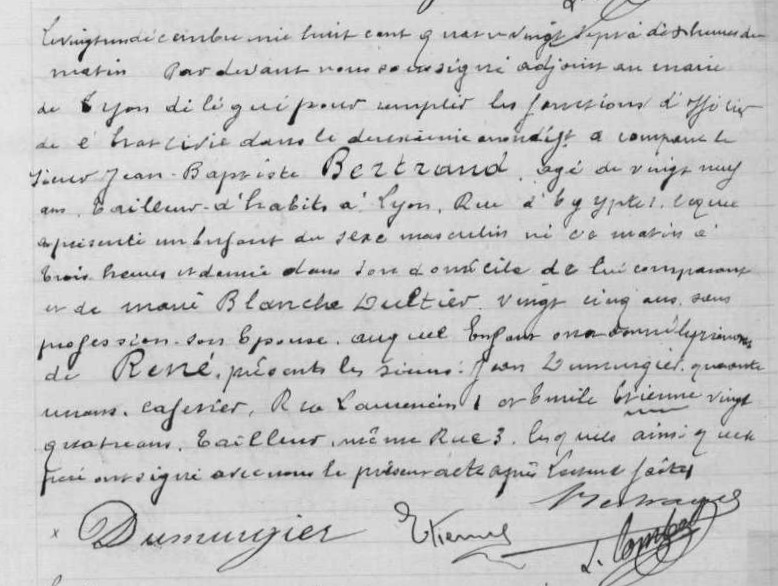 Le vingt un décembre mil huit cent quatre vingt sept à dix heures du
matin Par devant nous soussigné adjoint au maire
de Lyon délégué pour remplir les fonctions d'officier
de l'Etat Civil dans le deuxième arrondist a comparu le
sieur Jean-Baptiste Bertrand, agé de vingt neuf
ans, Tailleur-d'habits à Lyon, Rue d'Egypte 1, lequel
a présenté un Enfant du sexe masculin né ce matin à
trois heures et demie dans son domicile de lui comparant
et de Marie Blanche Dultier, vingt cinq ans, sans
profession, son Epouse, auquel Enfant on a donné les prénoms
de René, présents les sieurs: Jean Dumurgier, quarante
un ans, cafetier, Rue Laurencin 1 et Emile Etienne vingt
quatre ans, Tailleur, même Rue 3, lesquels ainsi que le
père ont signé avec nous le présent acte après Lecture faite
Bertrand
Dumurgier Etienne